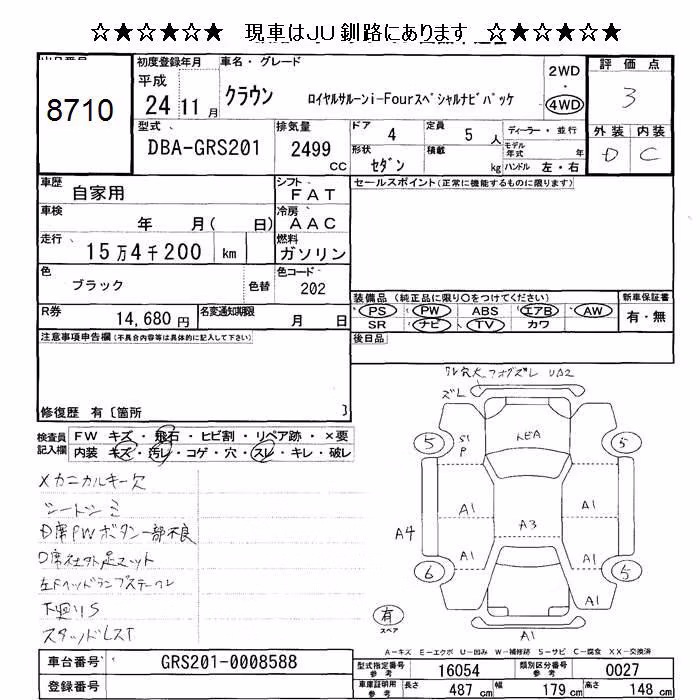 ☆★☆★☆★ 現車はJU釧路にあります ☆★☆★☆★
8710
初度登録年月
平成
24 11 月
車名・グレード
クラウン ロイヤルサルーンi-Fourスペシャルナビパッケ
2WD
・
4WD
評価点
3
外装 内装
D C
型式
DBA-GRS201
排気量
2499
CC
ドア 4
定員 5 人
形状 セダン
積載 kg
ディーラー・並行
モデル年式 年
ハンドル 左・右
車歴
自家用
シフト
FAT
車検
年 月( 日)
冷房
AAC
走行
15万4千200 km
燃料
ガソリン
色
ブラック
色替
色コード
202
R券
14,680円
名変通知期限
月 日
セールスポイント(正常に機能するものに限ります)
装備品 (純正品に限り○をつけてください)
PS PW ABS エアB AW
SR ナビ TV カワ
新車保証書
有・無
後日品
注意事項申告欄(不具合内容等は具体的に記入して下さい)
修復歴 有〔箇所 〕
検査員記入欄
FW キズ・飛石・ヒビ割・リペア跡・×要
内装 キズ・汚レ・コゲ・穴・スレ・キレ・破レ
メカニカルキー欠
シートシミ
D席PWボタン一部不良
D席社外足マット
左Fヘッドランプステークレ
下廻りS
スタッドレスT
フォグズレ U2
ズレ
5
S1
P
5
A1
A1
A4
A3
A1
A1
6
5
有
スペア
A1
A-キズ E-エクボ U-凹み W-補修跡 S-サビ C-腐食 XX-交換済
車台番号
GRS201-0008588
登録番号
型式指定番号 参考
16054
類別区分番号 参考
0027
車庫証明用 参考
長さ 487 cm
幅 179 cm
高さ 148 cm